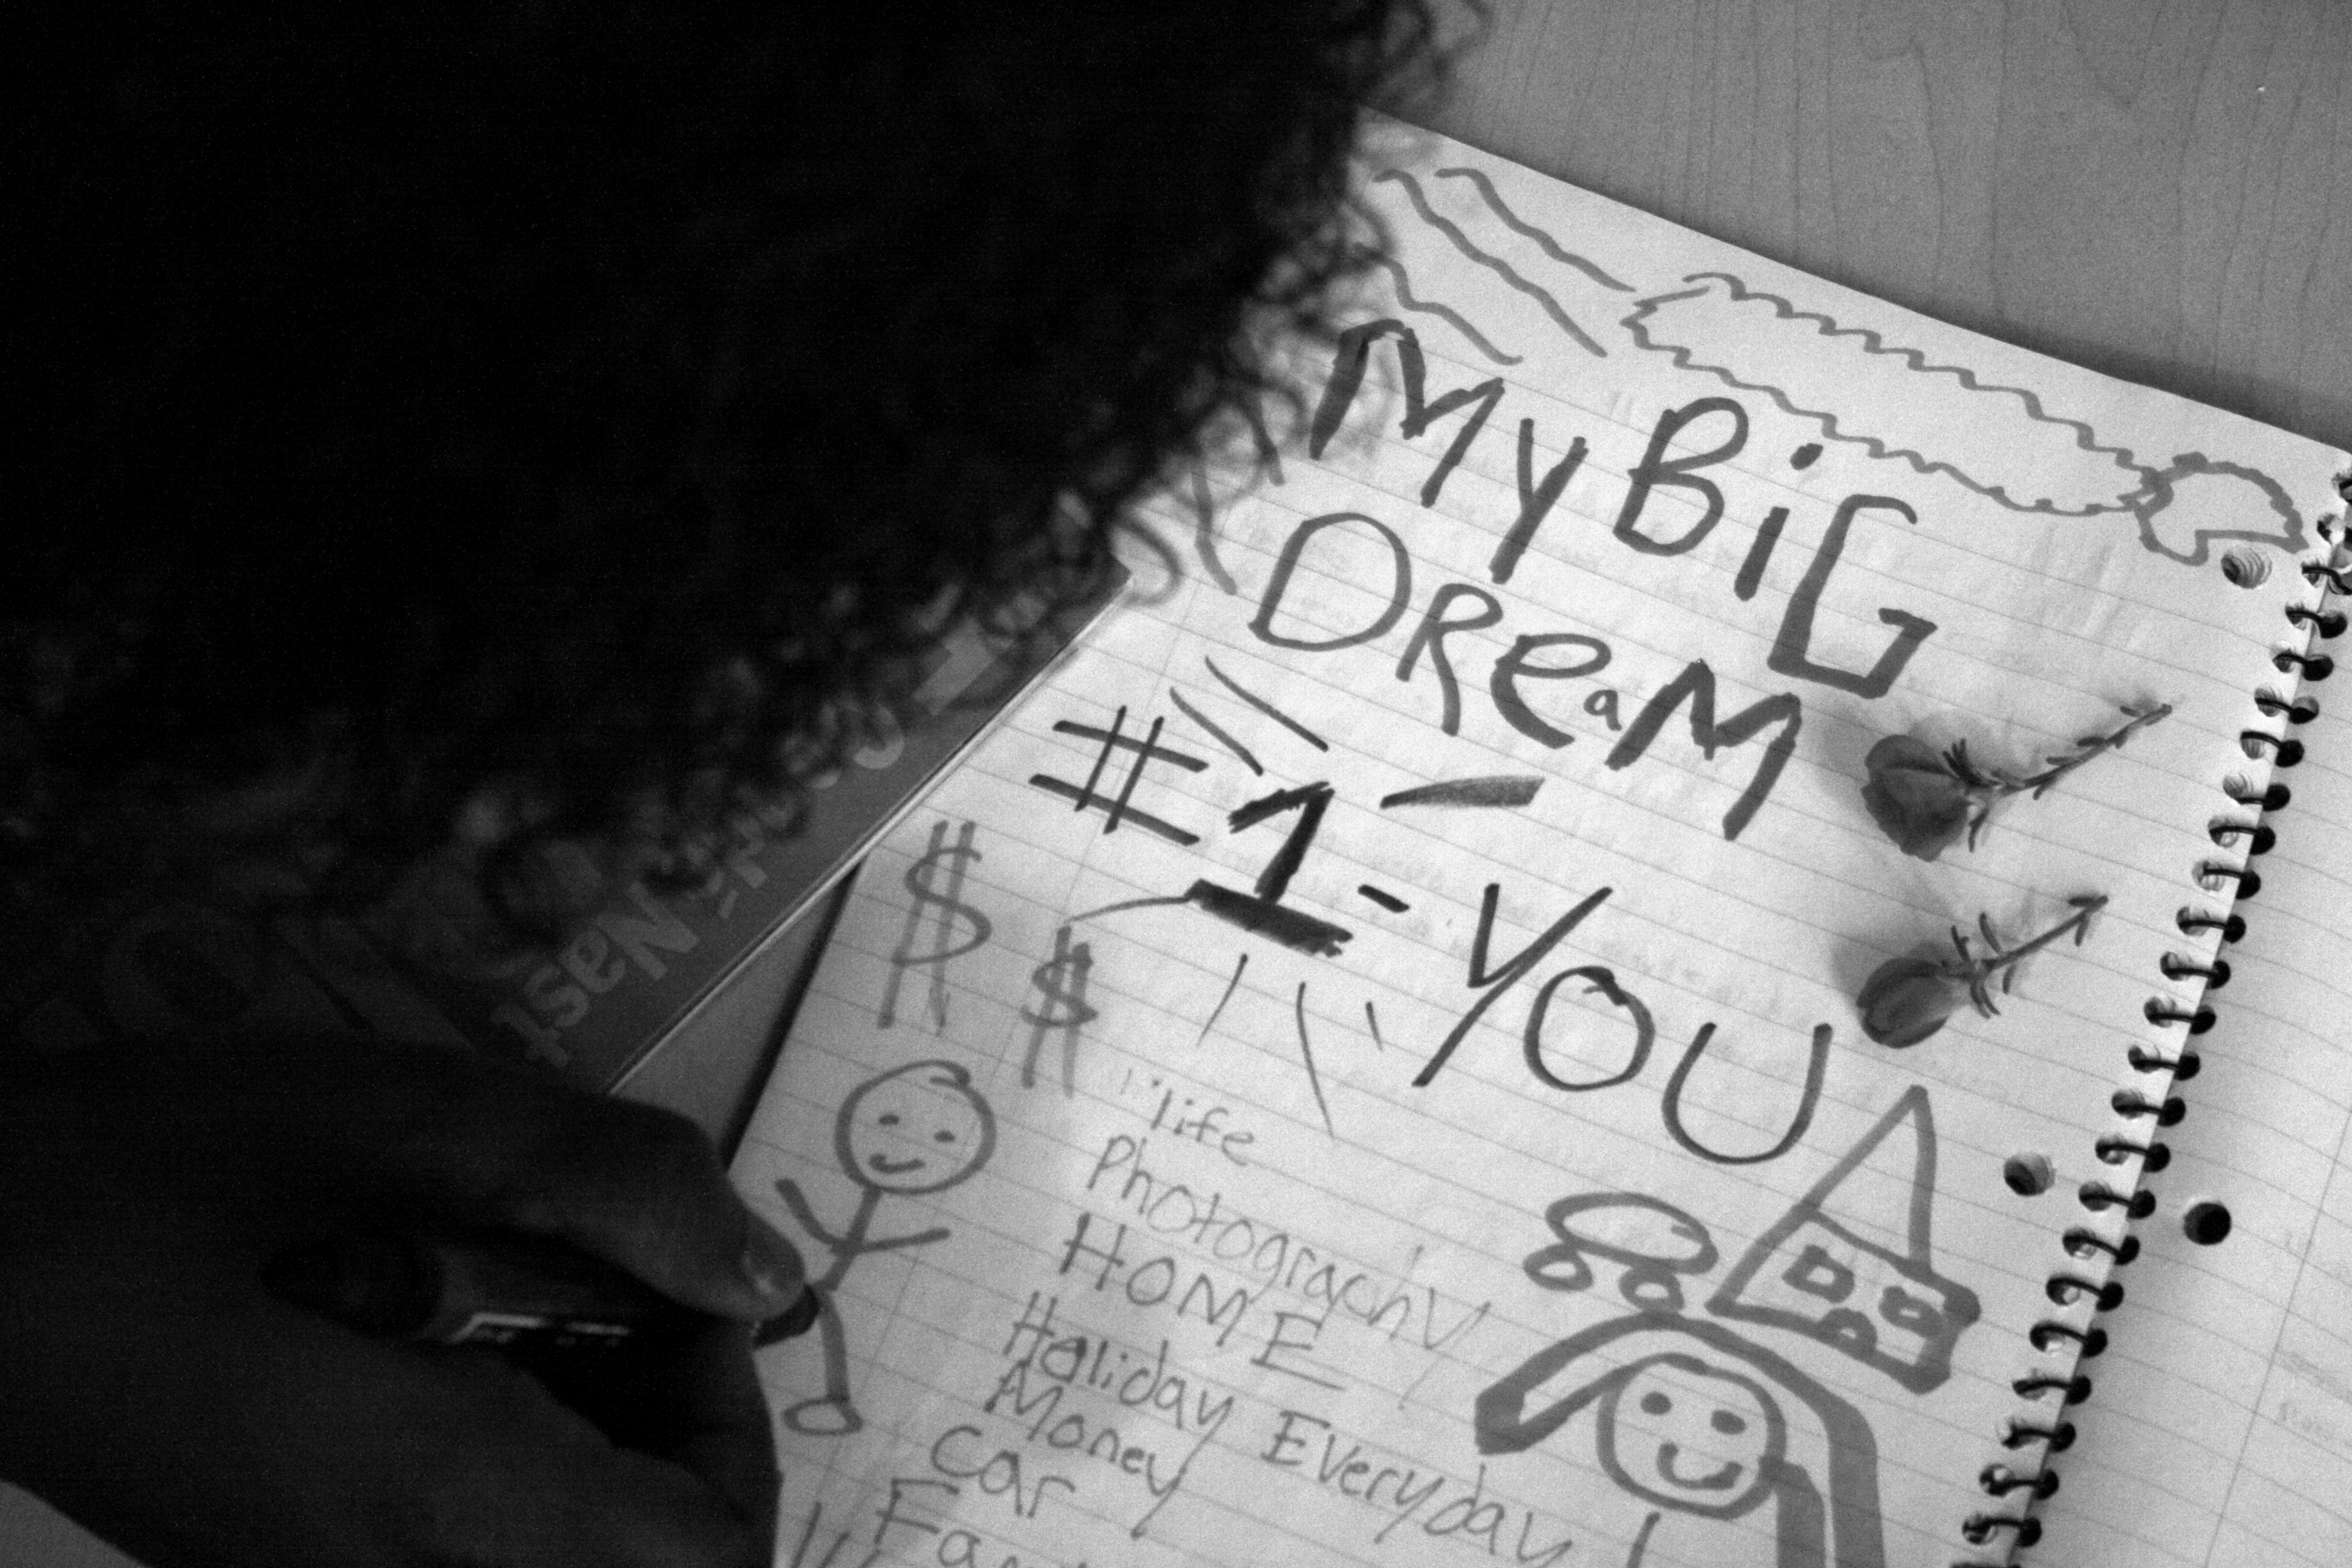 My BiG
DReaM
#1-YOU
$
$
life
Photography
HOME
Holiday Everyday
Money
Car
Nast